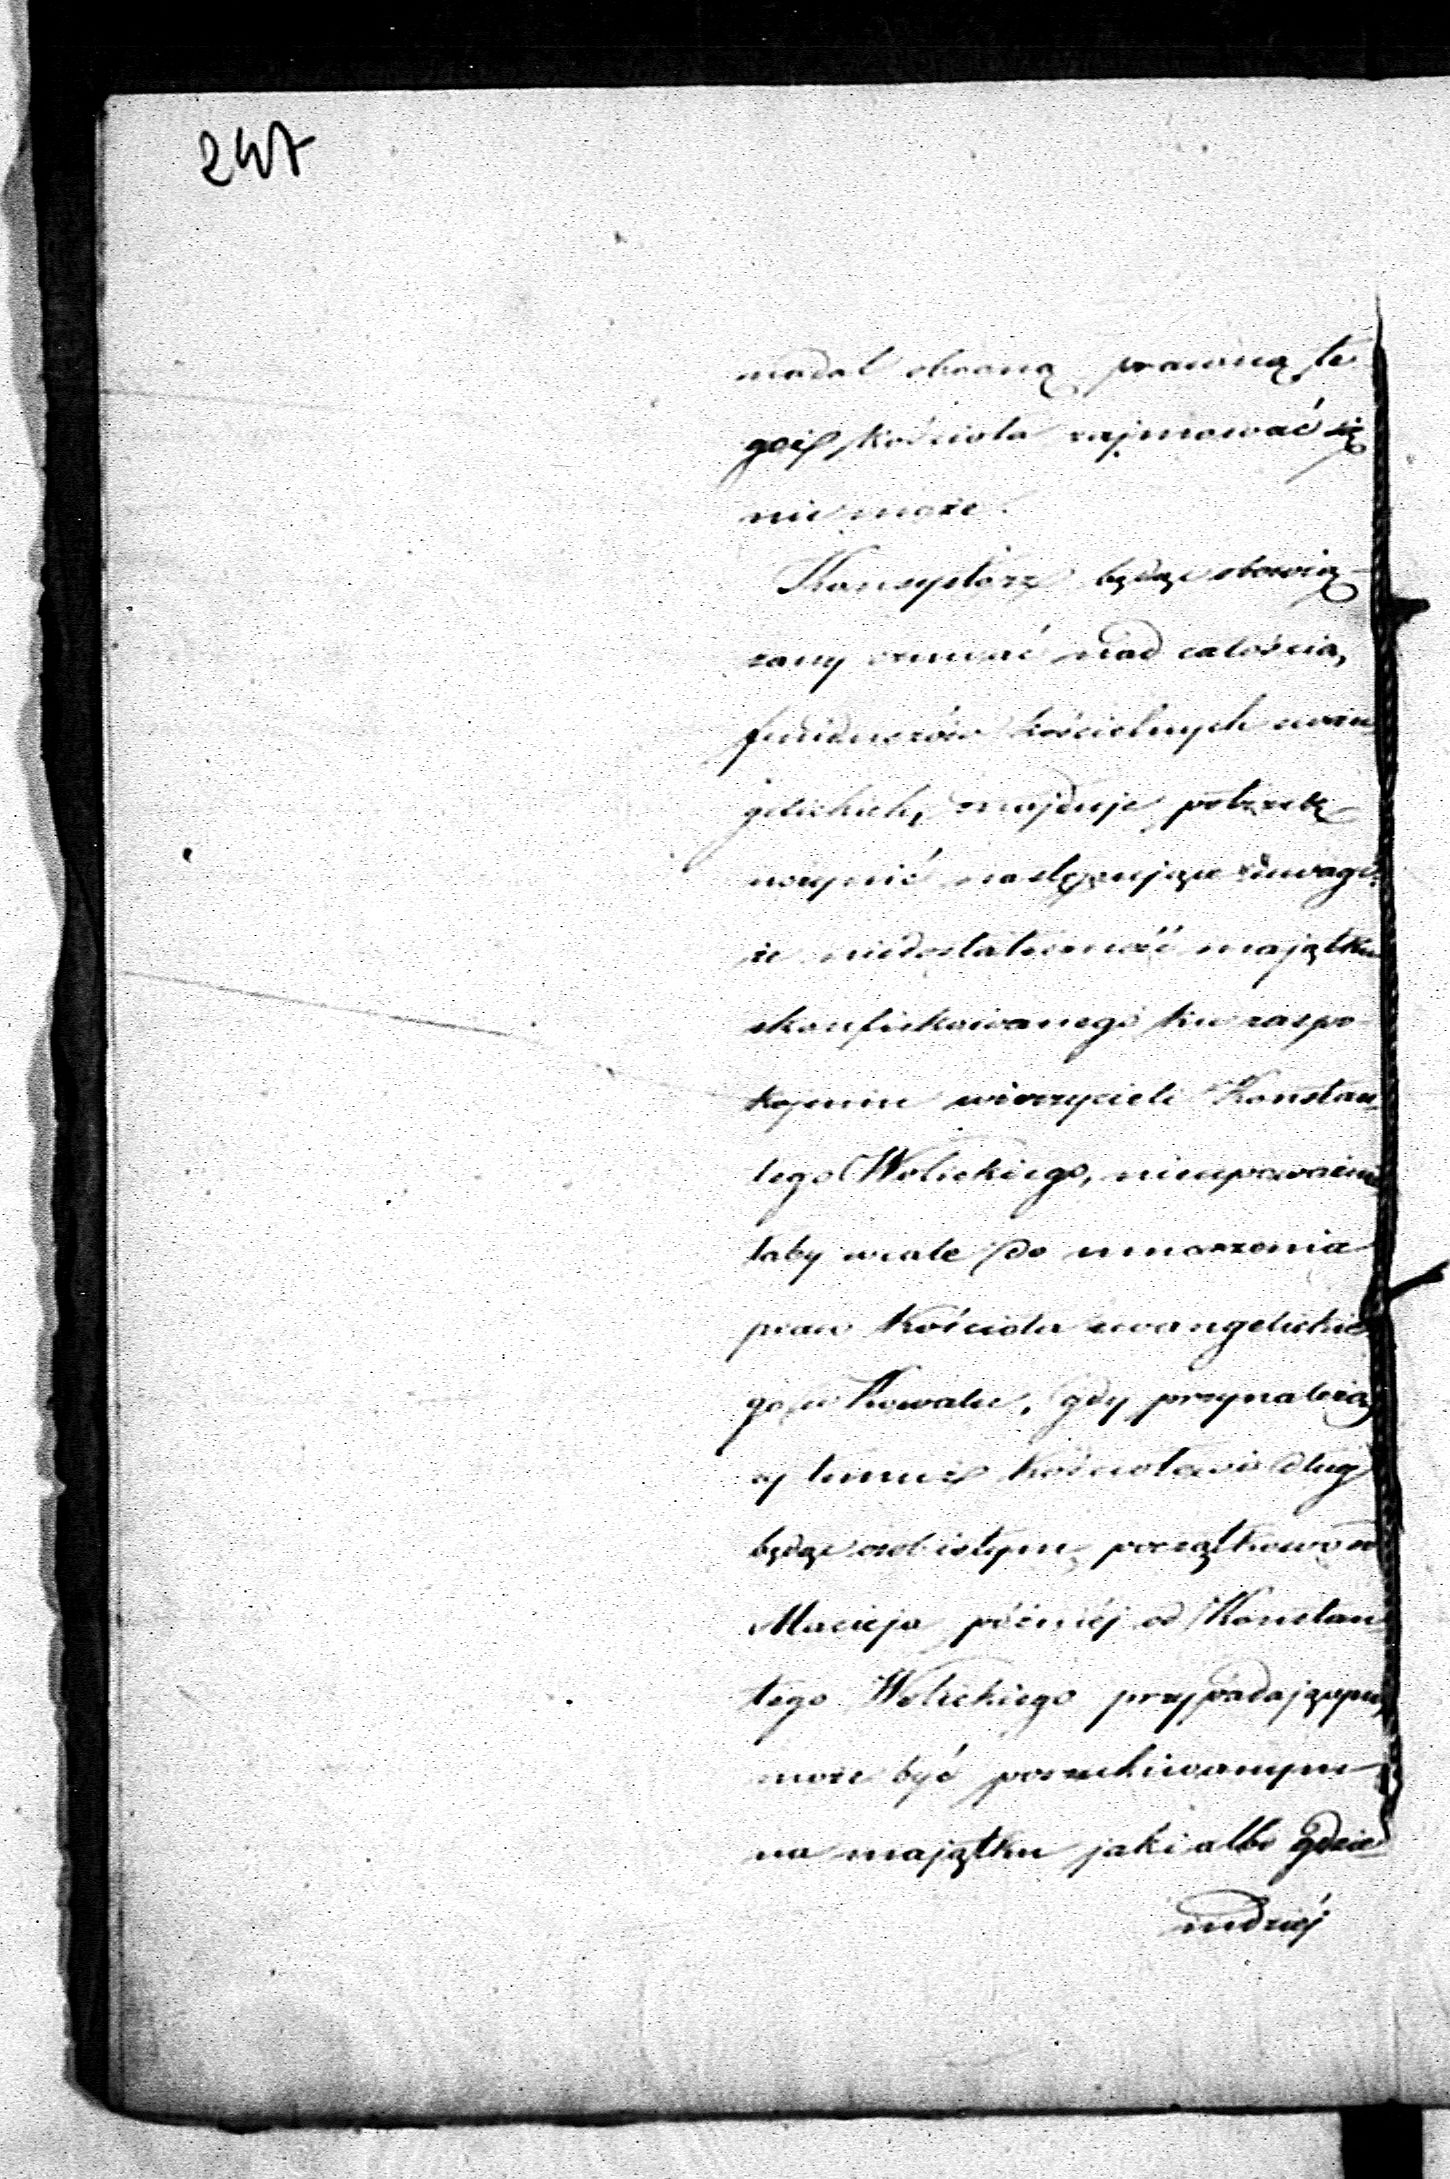 247
nadal obroną prawną te
goż kościoła zajmować się
nie może.
Konsystorz będąc obowią-
zany czuwać nad całością
funduszów kościelnych ewan
gelickich, znajduje potrzebę
uczynić następujące uwagi:
że niedostateczność majątku
skonfiskowanego ku zaspo-
kojeniu wierzycieli Konstan
tego Wolickiego, nieupoważni
łaby wcale do umorzenia
praw kościoła ewangelickie
go w Kowalu, gdy przynależą
cy temuż kościołowi dług
będąc osobistym, początkowo od
Macieja później od Konstan
tego Wolickiego przypadającym,
może być poszukiwanym
na majątku jaki albo gdzie
indziéj